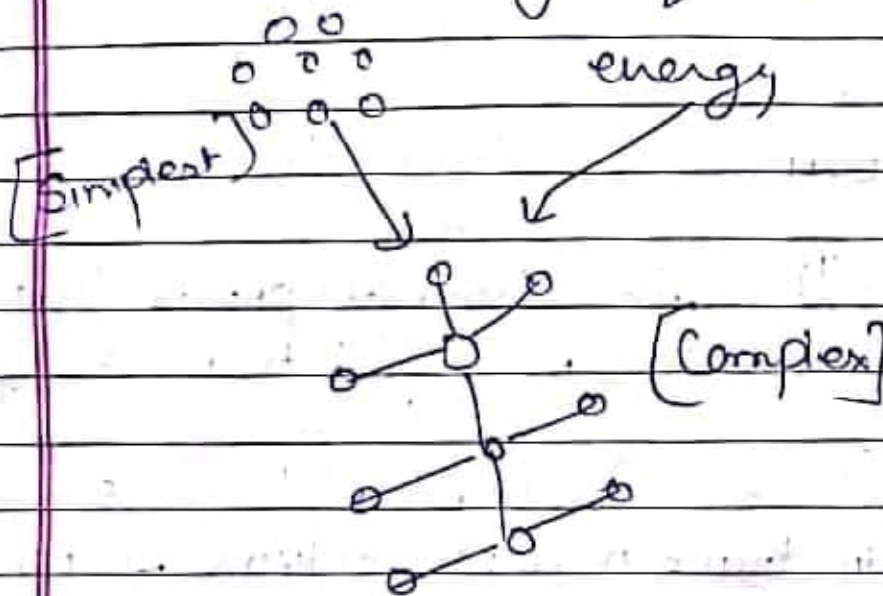 energy
[Simplest]
[Complex]